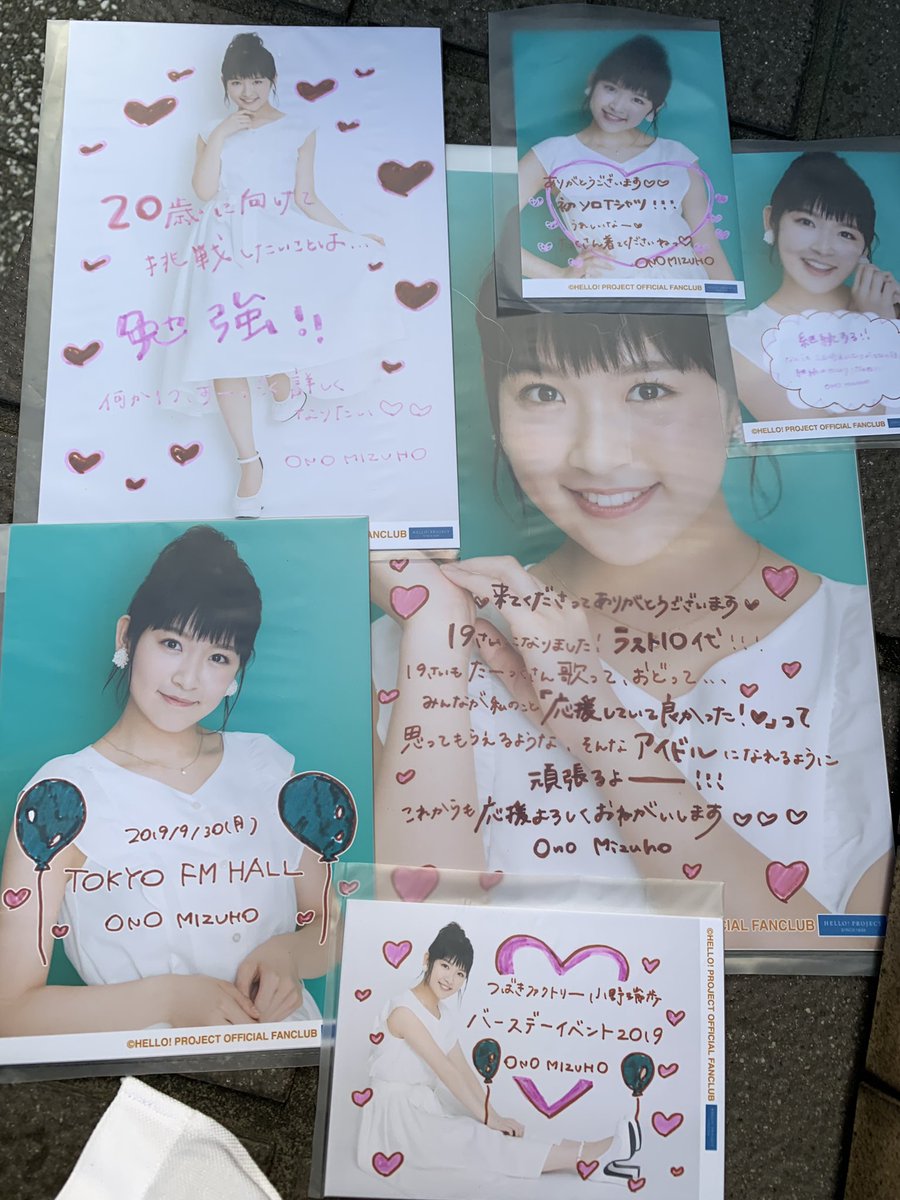 20歳に向けて
挑戦したいことは…
勉強!!
何か1つ
詳しく
なりたい♡♡
ONO MIZUHO
ANCLUB
HELLO! PROJECT
ありがとうございます♡♡
初ソロTシャツ!!!
うれしいなー♡
さん着てくださいねっ♡
ONO MIZUHO
©HELLO! PROJECT OFFICIAL FANCLUB
ONO MIZUHO
©HELLO! PROJECT OFFICIAL FANCLUB
♥来てくださってありがとうございます♥
19さいになりました!ラスト10代!!!
19さいもたーっくさん歌って、おどって...
みんなが私のこと「応援していて良かった!♥」って
思ってもらえるような、そんなアイドルになれるように
頑張るよー!!!
これからも応援よろしくおねがいします♡♡♡
Ono Mizuho
CIAL FANCLUB
HELLO! PROJECT
2019/9/30(月)
TOKYO FM HALL
ONO MIZUHO
©HELLO! PROJECT OFFICIAL FANCLUB
つばきファクトリー小野瑞歩
バースデーイベント2019
ONO MIZUHO
©HELLO! PROJECT OFFICIAL FANCLUB